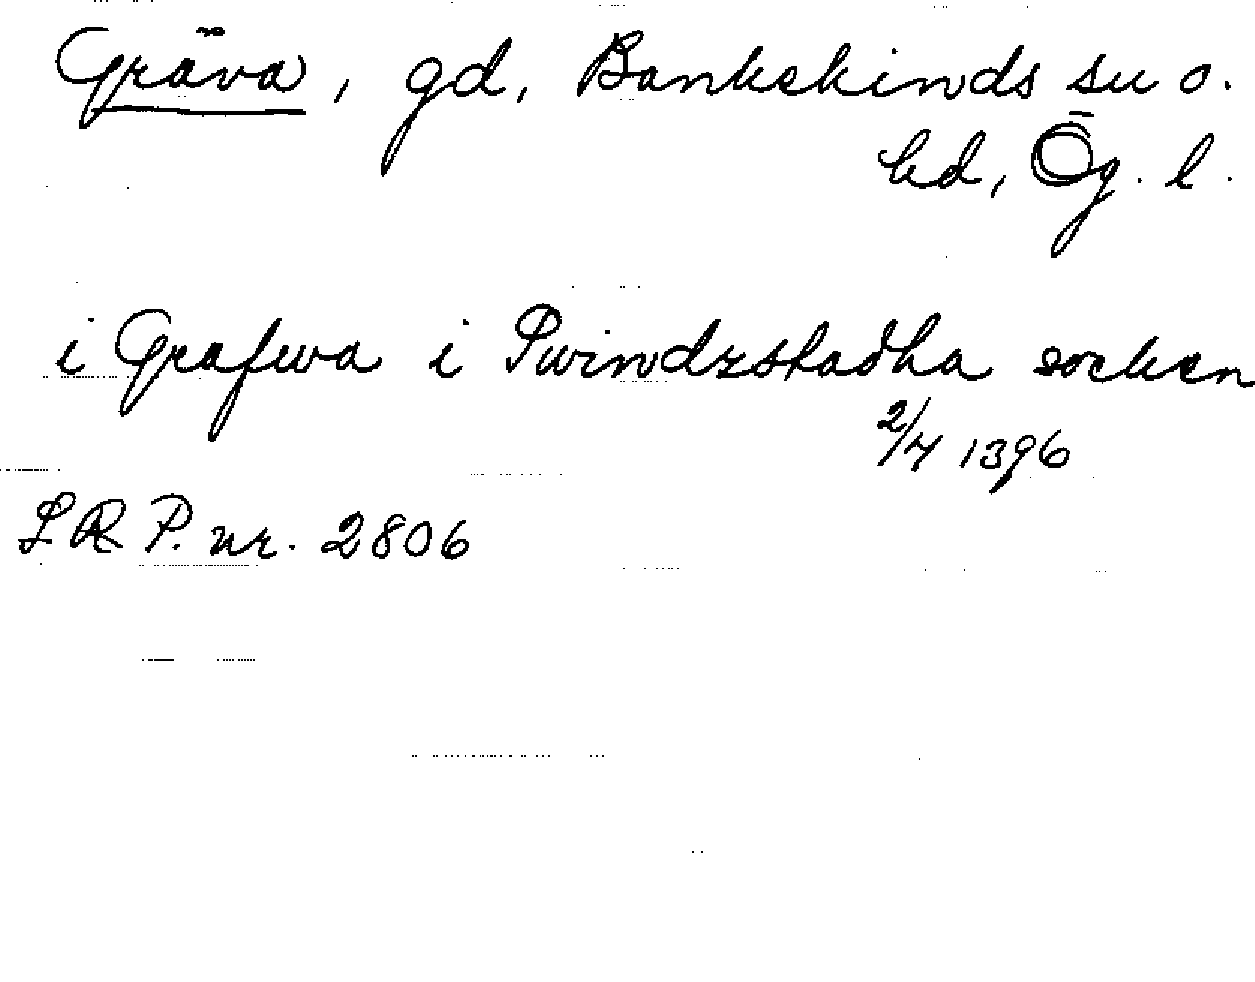 Gräva, gd, Bankekinds sn o.
hd, Ög. l.
i Grafwa i Swindzstadha socken
2/4 1396
SRP. nr. 2806